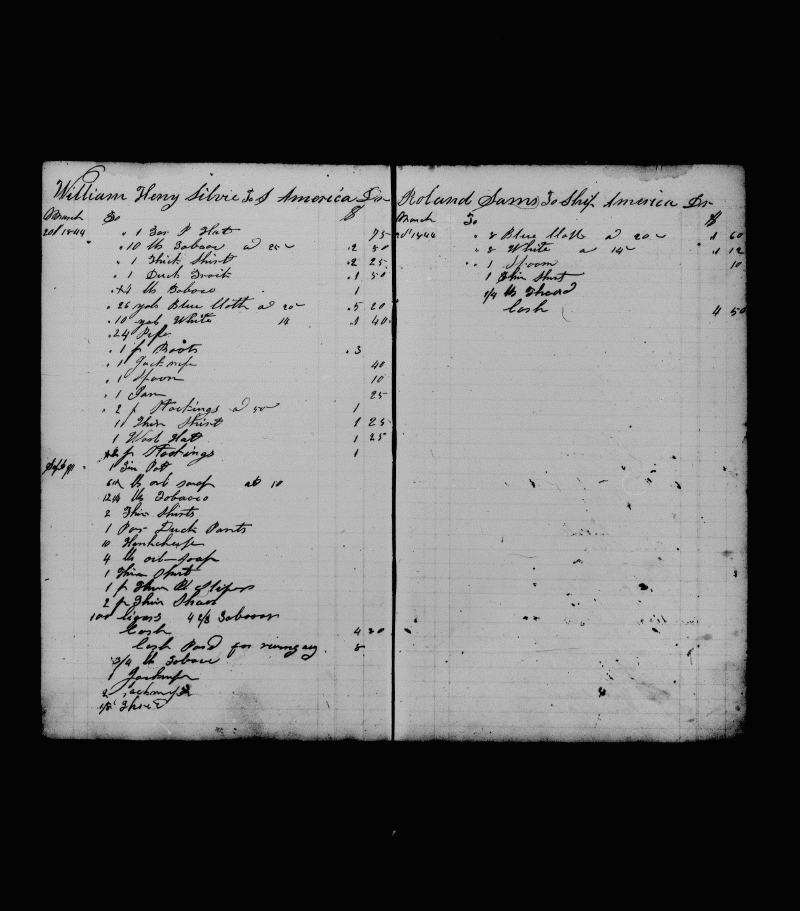 William Heny Silvie To S America Dr
March To $
20th 1844 " 1 Tar P Hat 75
" 10 lb Tobaco a 25 " 2 50
" 1 Thick Shirt " 2 25
" 1 Duck Trouit " 1 50
" 4 lb Tobaco 1
" 26 yds Blue Cloth a 20 " 5 20
" 10 yds White 14 " 1 40
" 24 Pipe
" 1 p Boots " 3
" 1 Jacknife 40
" 1 Spoon 10
" 1 Pan 25
" 2 p Stockings a 50 1
1 Thin Shirt 1 25
1 Wool Hat 1 25
2 p Stockings 1
1 Tin Pot
lb oil soap at 10
lb Tobacco
2 Thin Shirts
1 Par Duck Pants
10 Hankcheifs
4 lb oil soap
1 Thin Shirt
1 p Thin Slipers
2 p Thin Shoes
100 Cigars 4 2/8 Tobacco
Cash 4 20
Cash Paid for runing away 8
3/4 lb Tobaco
1 Jacknife
2 Jacknife
1/8 Thred
Roland Sams To Ship America Dr
March To $
20th 1844 " 8 Blue Cloth a 20 " 1 60
" 8 White a 14 " 1 12
" 1 Spoon 10
1 Thin Shirt
1/4 lb Thread
Cash 4 50